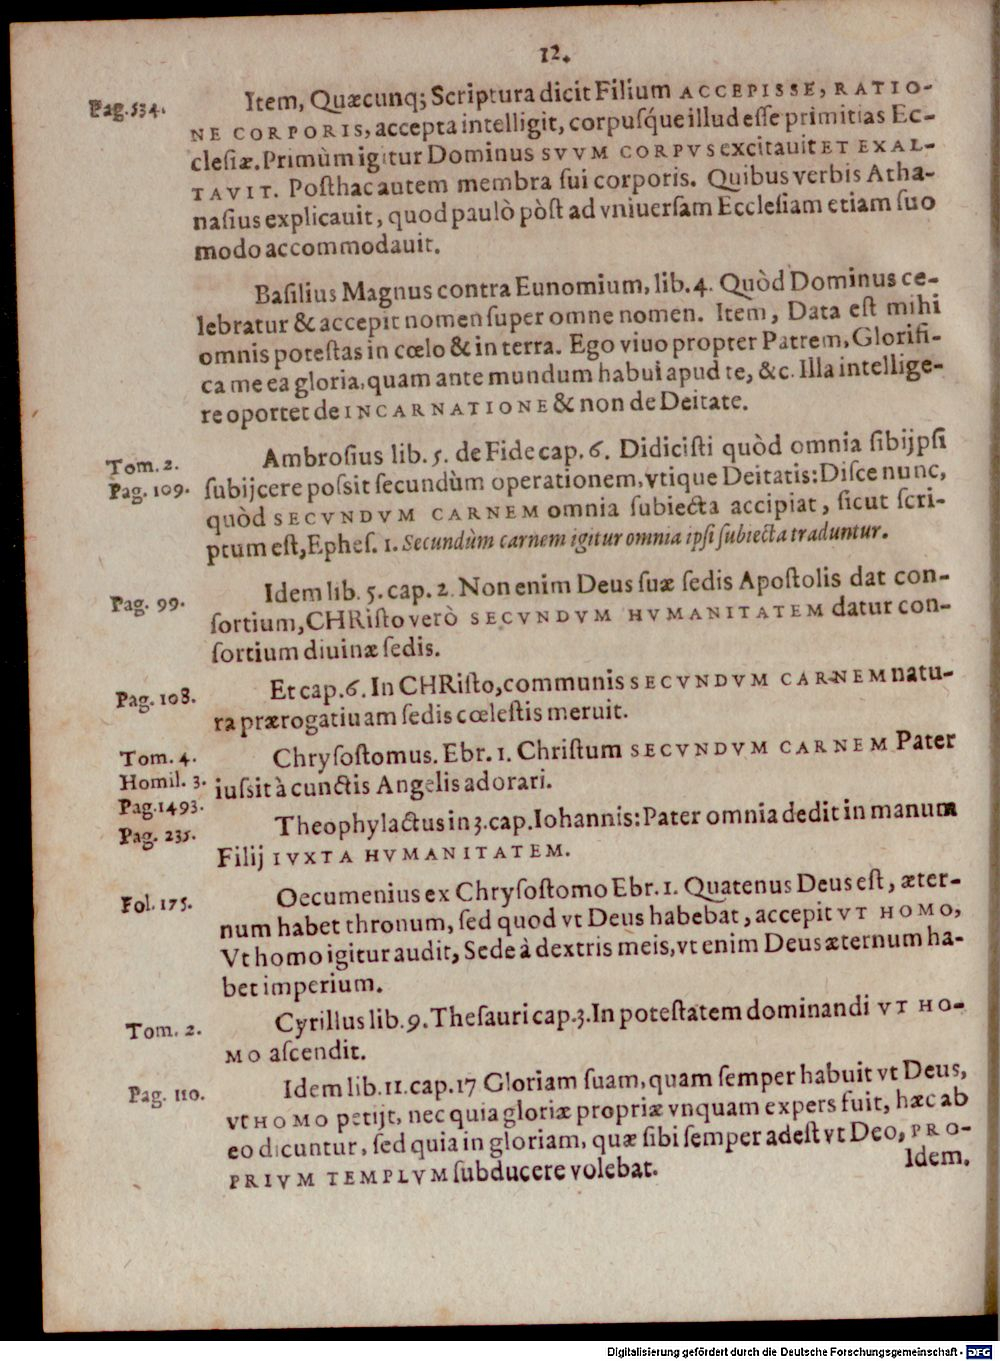 12.
Pag. 534.
Item, Quæcunq; Scriptura dicit Filium ACCEPISSE, RATIO-
NE CORPORIS, accepta intelligit, corpusq́ue illud esse primitias Ec-
clesiæ. Primùm igitur Dominus SVVM CORPVS excitauit ET EXAL-
TAVIT. Posthac autem membra sui corporis. Quibus verbis Atha-
nasius explicauit, quod paulò pòst ad vniuersam Ecclesiam etiam suo
modo accommodauit.
Basilius Magnus contra Eunomium, lib. 4. Quòd Dominus ce-
lebratur & accepit nomen super omne nomen. Item, Data est mihi
omnis potestas in cœlo & in terra. Ego viuo propter Patrem, Glorifi-
ca me ea gloria, quam ante mundum habui apud te, &c. Illa intellige-
re oportet de INCARNATIONE & non de Deitate.
Tom. 2.
Pag. 109.
Ambrosius lib. 5. de Fide cap. 6. Didicisti quòd omnia sibijpsi
subijcere possit secundùm operationem, vtique Deitatis: Disce nunc,
quòd SECVNDVM CARNEM omnia subiecta accipiat, sicut scri-
ptum est, Ephes. 1. Secundùm carnem igitur omnia ipsi subiecta traduntur.
Pag. 99.
Idem lib. 5. cap. 2. Non enim Deus suæ sedis Apostolis dat con-
sortium, CHRisto verò SECVNDVM HVMANITATEM datur con-
sortium diuinæ sedis.
Pag. 108.
Et cap. 6. In CHRisto, communis SECVNDVM CARNEM natu-
ra prærogatiuam sedis cœlestis meruit.
Tom. 4.
Homil. 3.
Pag. 1493.
Chrysostomus. Ebr. 1. Christum SECVNDVM CARNEM Pater
iussit à cunctis Angelis adorari.
Pag. 235.
Theophylactus in 3. cap. Iohannis: Pater omnia dedit in manum
Filij IVXTA HVMANITATEM.
Fol. 175.
Oecumenius ex Chrysostomo Ebr. 1. Quatenus Deus est, æter-
num habet thronum, sed quod vt Deus habebat, accepit VT HOMO,
Vt homo igitur audit, Sede à dextris meis, vt enim Deus æternum ha-
bet imperium.
Tom. 2.
Cyrillus lib. 9. Thesauri cap. 3. In potestatem dominandi VT HO-
MO ascendit.
Pag. 110.
Idem lib. 11. cap. 17 Gloriam suam, quam semper habuit vt Deus,
vt HOMO petijt, nec quia gloriæ propriæ vnquam expers fuit, hæc ab
eo dicuntur, sed quia in gloriam, quæ sibi semper adest vt Deo, PRO-
PRIVM TEMPLVM subducere volebat.
Idem.
Digitalisierung gefördert durch die Deutsche Forschungsgemeinschaft - DFG